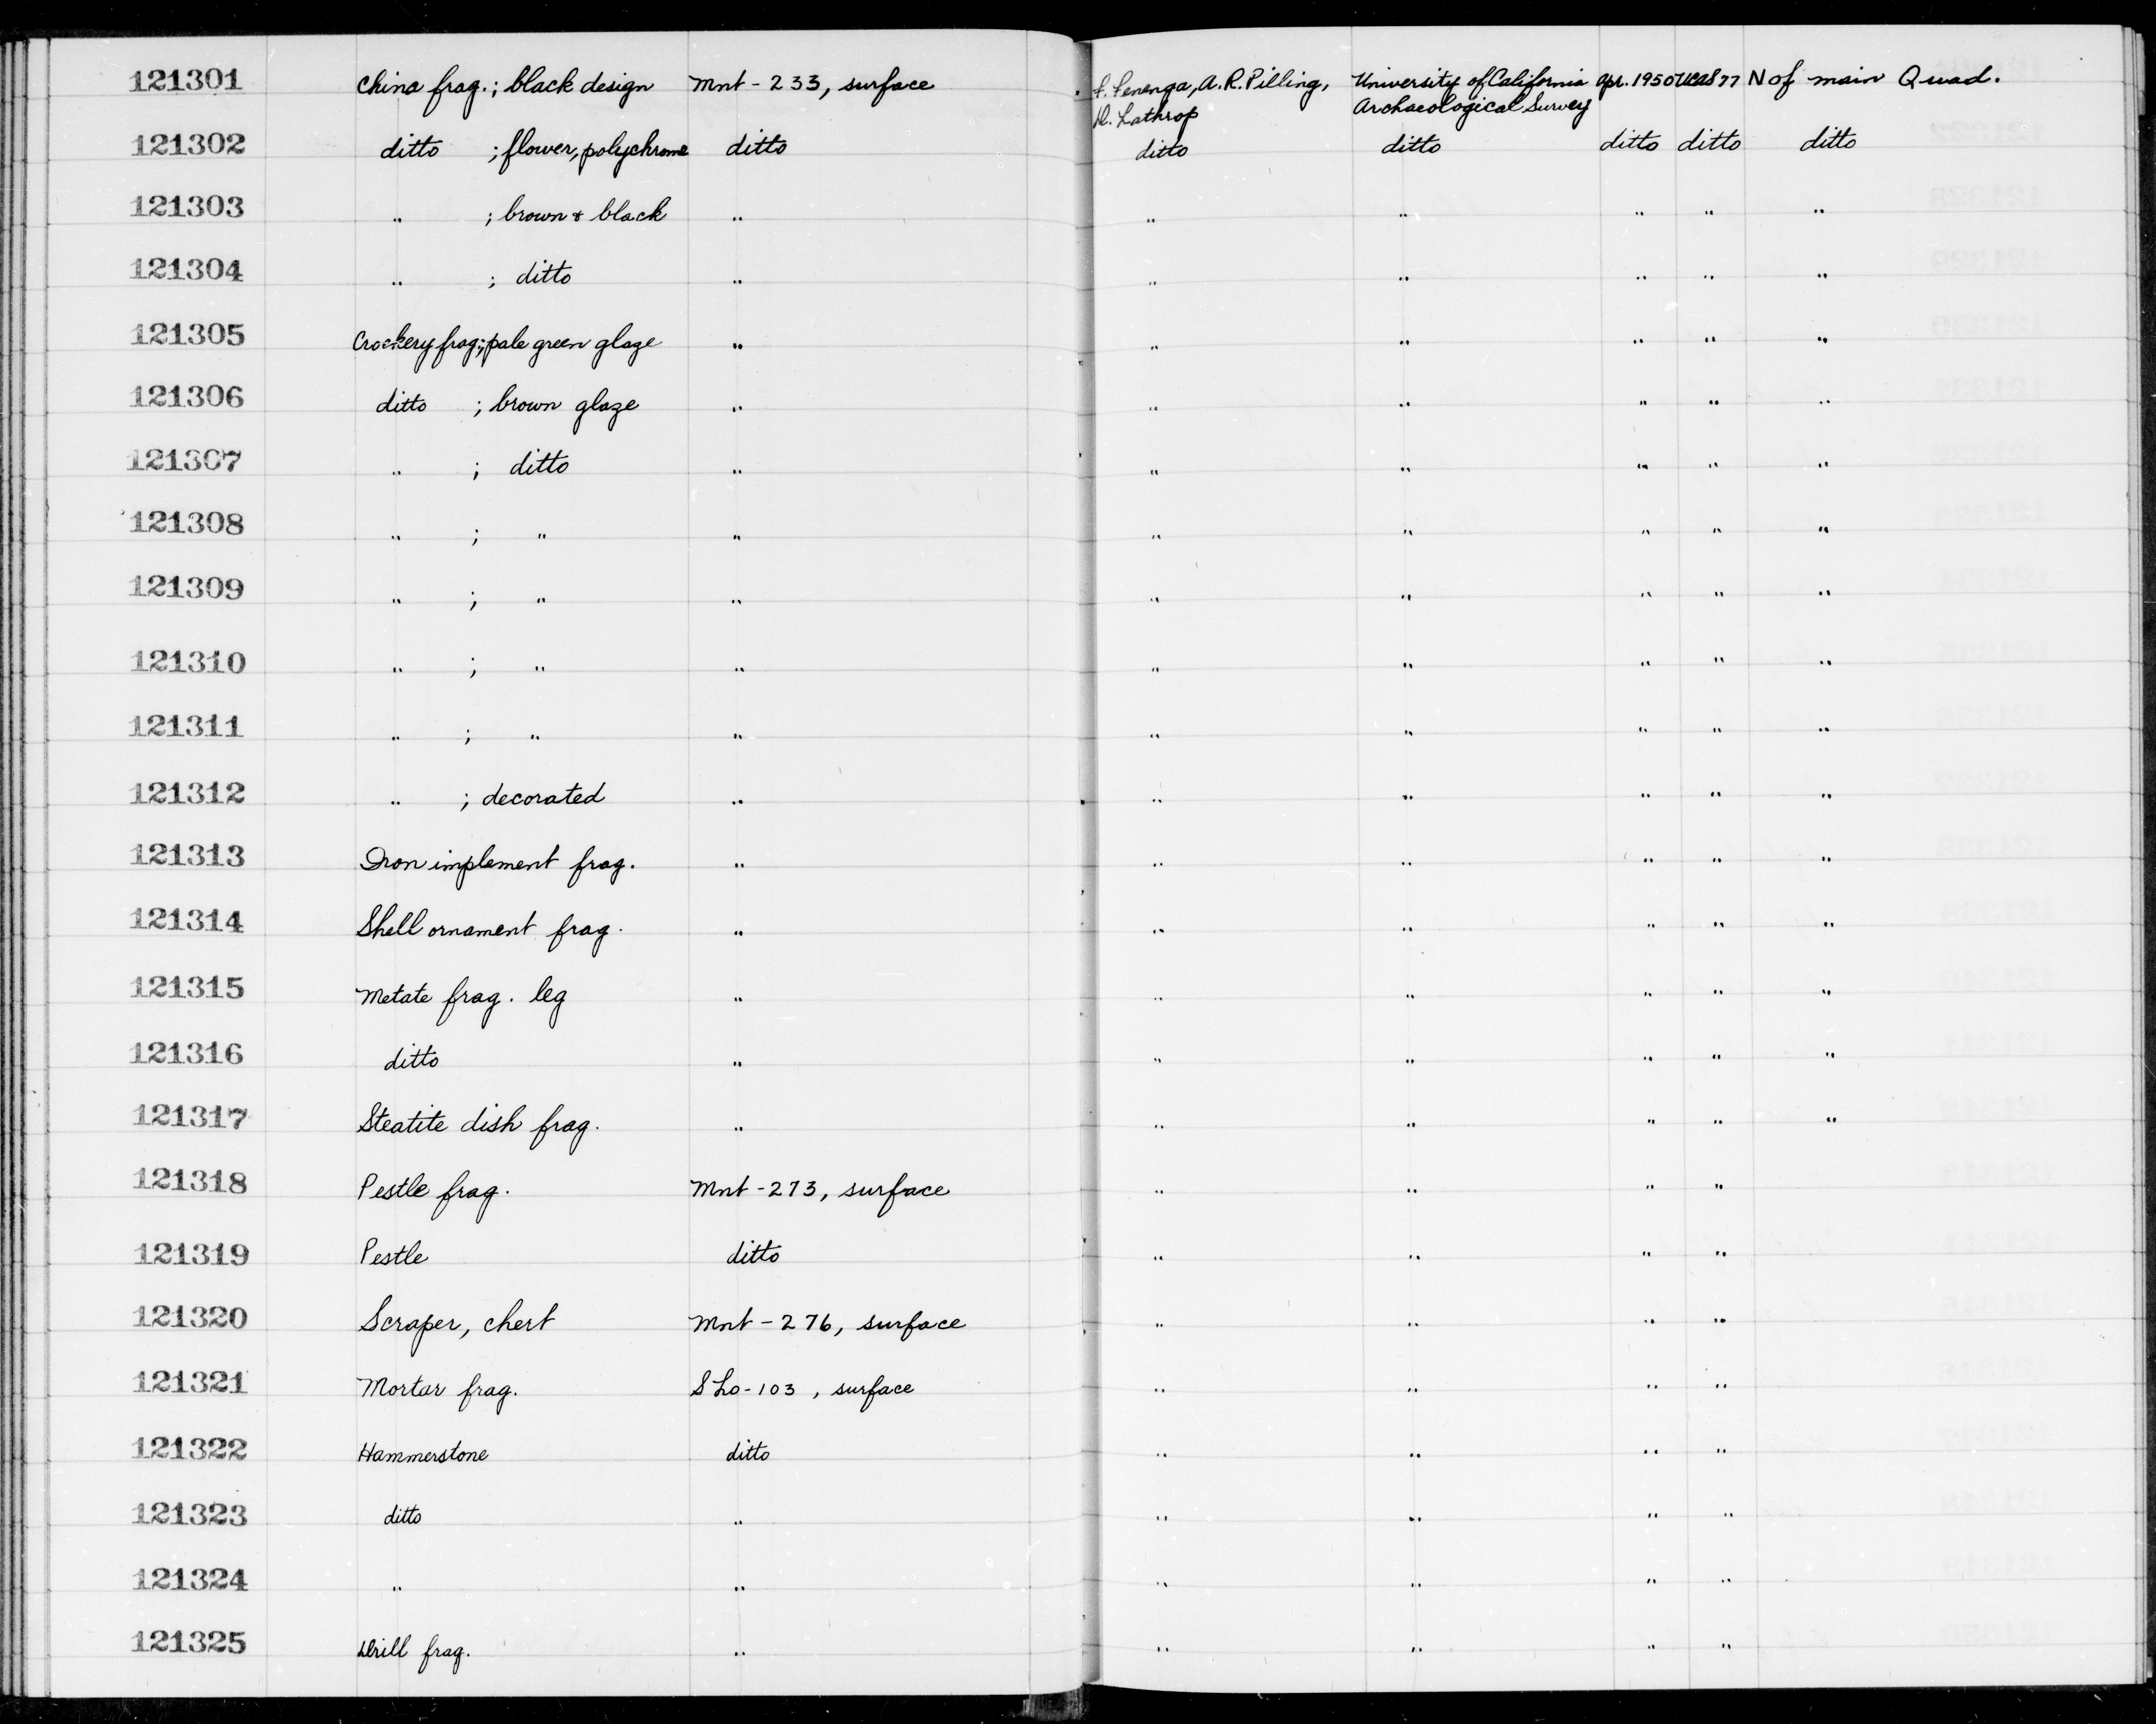 121301 China frag.; black design Mnt-233, surface F. Fenenga, A.R. Pilling, University of California Apr. 1950 UCAS 77 N of main Quad.
D. Lathrop Archaeological Survey
121302 ditto ; flower, polychrome ditto ditto ditto ditto ditto ditto
121303 " ; brown & black " " " " " "
121304 " ; ditto " " " " " "
121305 Crockery frag.; pale green glaze " " " " " "
121306 ditto ; brown glaze " " " " " "
121307 " ; ditto " " " " " "
121308 " ; " " " " " " "
121309 " ; " " " " " " "
121310 " ; " " " " " " "
121311 " ; " " " " " " "
121312 " ; decorated " " " " " "
121313 Iron implement frag. " " " " " "
121314 Shell ornament frag. " " " " " "
121315 Metate frag. leg " " " " " "
121316 ditto " " " " " "
121317 Steatite dish frag. " " " " " "
121318 Pestle frag. Mnt-273, surface " " " "
121319 Pestle ditto " " " "
121320 Scraper, chert Mnt-276, surface " " " "
121321 Mortar frag. SLo-103, surface " " " "
121322 Hammerstone ditto " " " "
121323 ditto " " " " "
121324 " " " " " "
121325 Drill frag. " " " " "